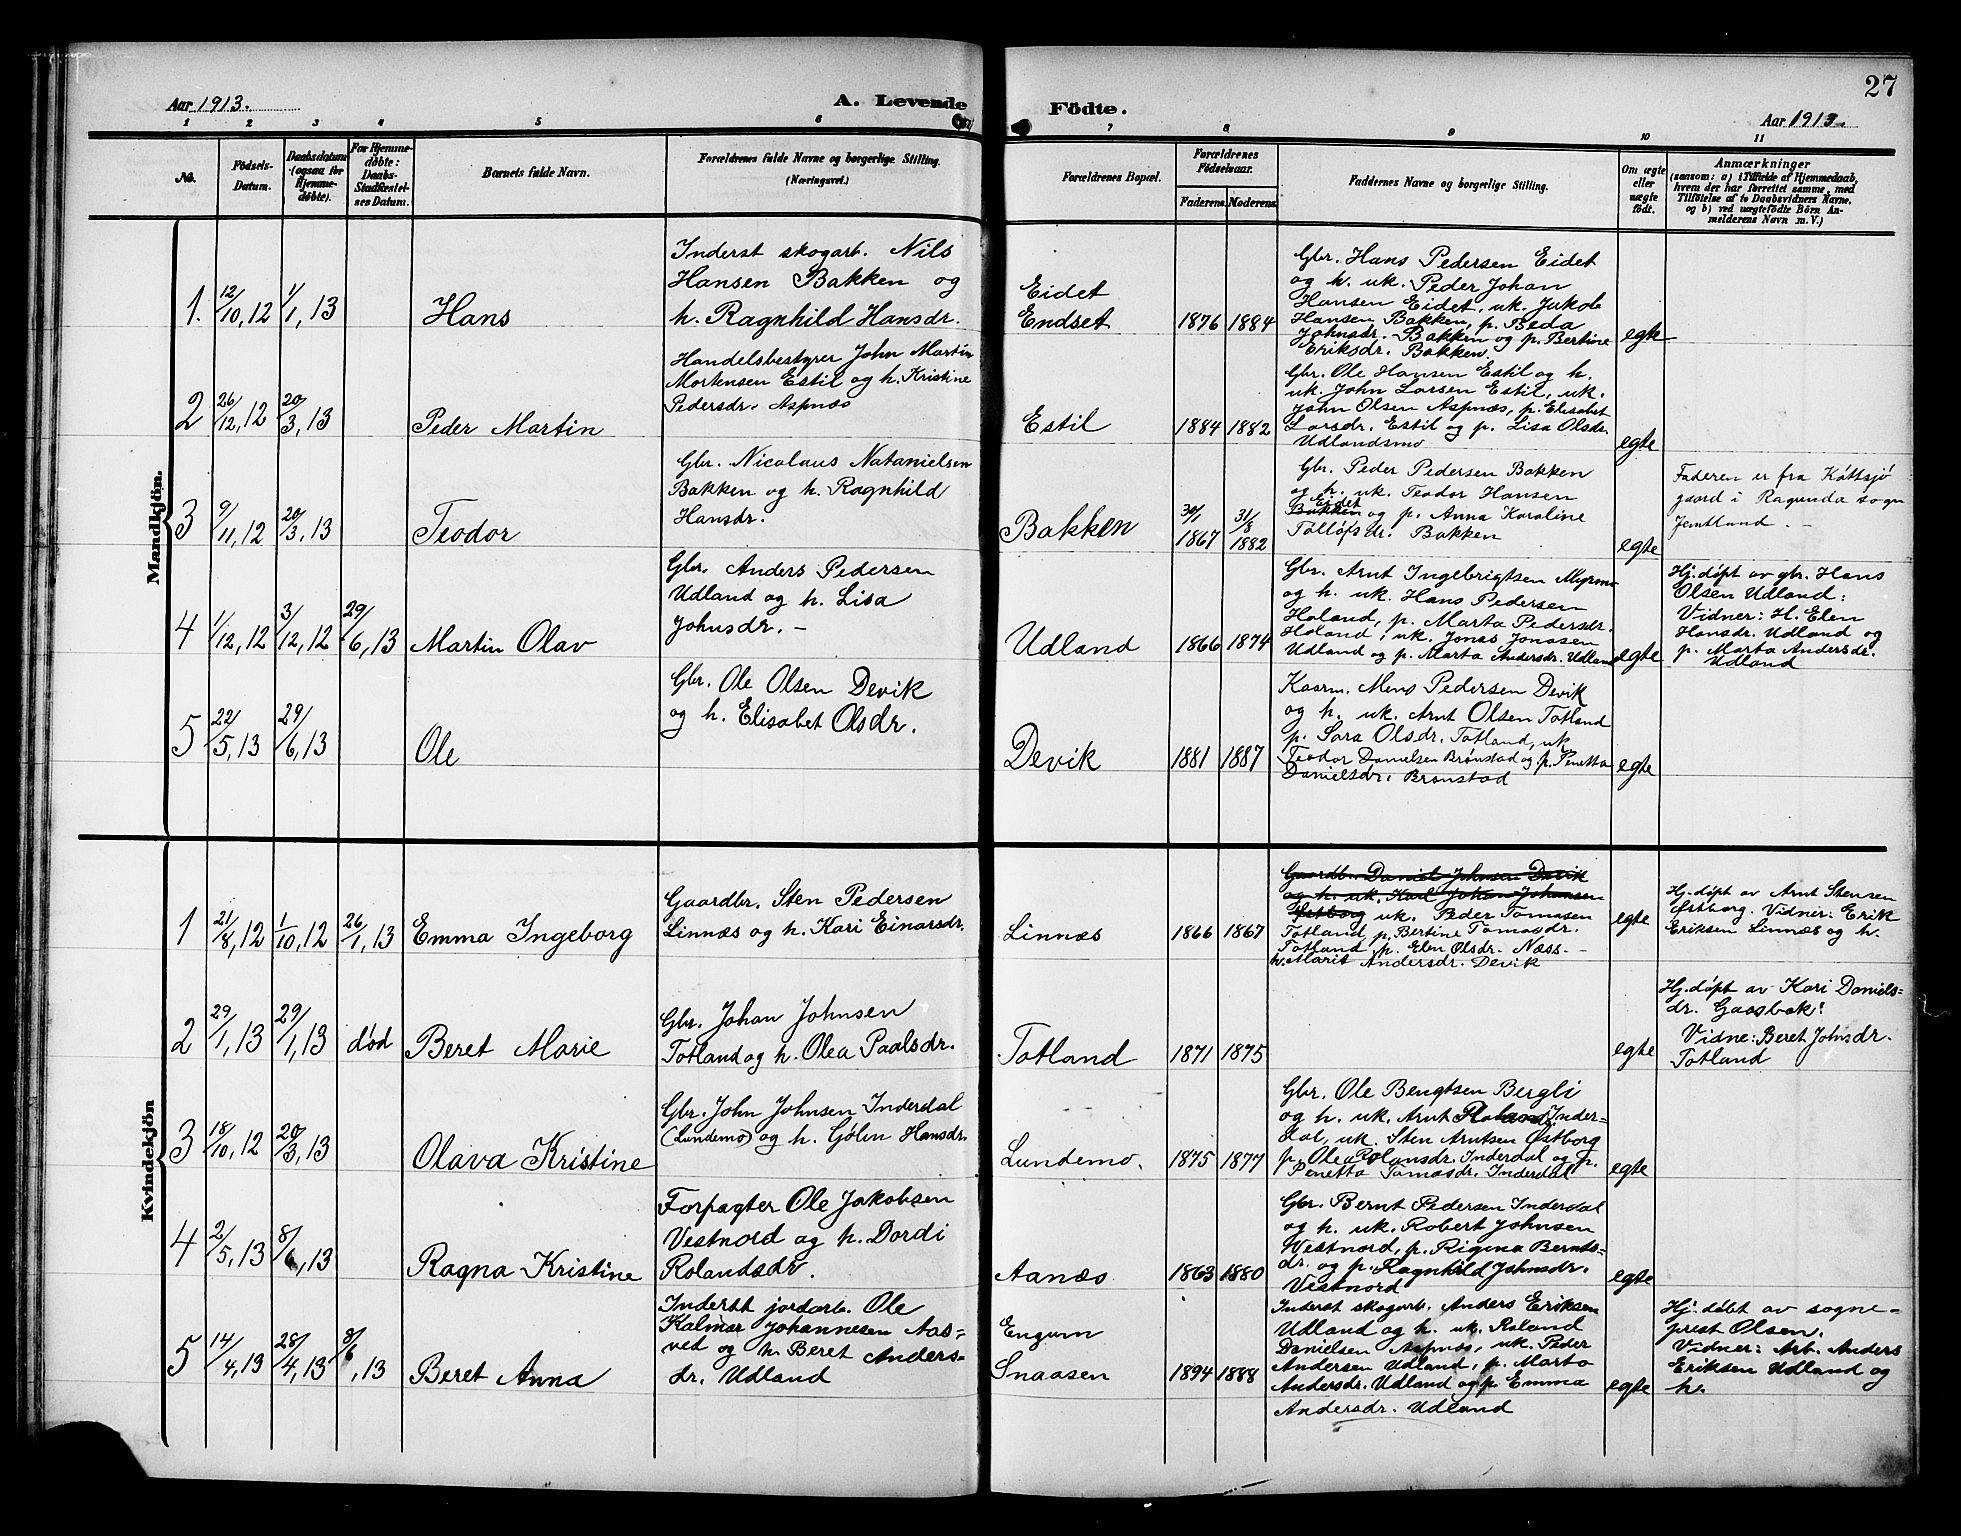 Aar 1913.
A. Levende
Födte.
27
Aar 1913.
1 2 3 4 5 6
7 8 9 10 11
No.
Födsels-
Datum.
Daabsdatum
(ogsaa for
Hjemme-
døbte).
For Hjemme-
døbte:
Daabs-
Stadfæstel-
ses Datum.
Barnets fulde Navn.
Forældrenes fulde Navne og borgerlige Stilling.
(Næringsvei.)
Forældrenes Bopæl.
Forældrenes
Fødselsaar.
Faderens.
Moderens.
Faddernes Navne og borgerlige Stilling.
Om ægte
eller
uægte
født.
Anmærkninger
(saasom: a) i Tilfælde af Hjemmedaab,
hvem der har forrettet samme, med
Tilføielse af to Daabsvidners Navne,
og b) ved uægtefødte Börn An-
melderens Navn m. V.)
Mandkjön.
1. 12/10, 12 1/1, 13
Hans
Inderst skogarb. Nils
Hansen Bakken og
h. Ragnhild Hansdr.
Eidet
Endset
1876 1884
Gbr. Hans Pedersen Eidet
og h. uk. Peder Johan
Hansen Eidet, uk. Jakob
Hansen Bakken, p. Beda
Johnsdr. Bakken og p. Bertine
Eriksdr. Bakken.
egte
2 26/12, 12 20/3, 13
Peder Martin
Handelsbestyrer John Martin
Mortensen Estil og h. Kristine
Pedersdr. Aspnæs
Estil
1884 1882
Gbr. Ole Hansen Estil og h.
uk. John Larsen Estil, uk.
John Olsen Aspnæs, p. Elisabet
Larsdr. Estil og p. Lisa Olsdr.
Udlandsmo
egte
3 9/11, 12 20/3, 13
Teodor
Gbr. Nicolaus Natanielsen
Bakken og h. Ragnhild
Hansdr.
Bakken
30/1 1867
31/8 1882
Gbr. Peder Pedersen Bakken
og h. uk. Teodor Hansen
Eidet
Bakken og p. Anna Karoline
Tollöfsdr. Bakken
egte
Faderen er fra Köttsjö
gaard i Ragunda sogn
Jemtland. –
4 1/12, 12 3/12, 12 29/6, 13
Martin Olav
Gbr. Anders Pedersen
Udland og h. Lisa
Johnsdr. –
Udland
1866 1874
Gbr. Arnt Ingebrigtsen Myrmo
og h. uk. Hans Pedersen
Haland, p. Marta Pedersdr.
Haland, uk. Jonas Jonasen
Udland og p. Marta Andersdr. Udland
egte
Hj. døpt av gbr. Hans
Olsen Udland:
Vidner: H. Elen
Hansdr. Udland og
p. Marta Andersdr.
Udland
5 22/5, 13 29/6, 13
Ole
Gbr. Ole Olsen Devik
og h. Elisabet Olsdr.
Devik
1881 1887
Kaarm. Mens Pedersen Devik
og h. uk. Arnt Olsen Totland
p. Sara Olsdr. Totland, uk
Teodor Danielsen Brønstad og p. Penetta
Danielsdr. Brønstad
egte
Kvindekjön
1 21/8, 12 1/10, 12 26/1, 13
Emma Ingeborg
Gaardbr. Sten Pedersen
Linnæs og h. Kari Einarsdr.
Linnæs
1866 1867
Gaardbr. Daniel Johnsen Devik
og h. uk. Karl Johan Johansen
Østborg uk. Peder Tomasen
Totland, p. Bertine Tomasdr.
Totland, p. Elen Olsdr. Næss. –
h. Marit Andersdr. Devik
egte
Hj. døpt av Arnt Stensen
Østborg. Vidner: Erik
Eriksen Linnæs og h.
2 29/1, 13 29/1, 13 død
Beret Marie
Gbr. Johan Johnsen
Totland og h. Olea Paalsdr.
Totland
1871 1875
egte
Hj. døpt av Kari Daniels-
dr. Gaasbak:
Vidne: Beret Johnsdr.
Totland
3 18/10, 12 20/3, 13
Olava Kristine
Gbr. John Johnsen Inderdal
(Lundemo) og h. Gjölin Hansdr.
Lundemo.
1875 1877
Gbr. Ole Bengtsen Bergli
og h. uk. Arnt Inder-
dal, uk. Sten Arntsen Østborg
p. Olea Rolansdr. Inderdal og p.
Penetta Tomasdr. Inderdal
egte
4 2/5, 13 8/6, 13
Ragna Kristine
Forpagter Ole Jakobsen
Vestnord og h. Dordi
Rolandsdr.
Aanæs
1863 1880
Gbr. Bernt Pedersen Inderdal
og h. uk. Robert Johnsen
Westnord, p. Regina Bernts-
dr. og p. Ragnhild Johnsdr.
Vestnord
egte
5 14/4, 13 28/4, 13 8/6, 13
Beret Anna
Inderst jordarb. Ole
Kalmar Johannesen Aas-
ved og h. Beret Anders-
dr. Udland
Engum
Snaasen
1894 1888
Inderst skogarb. Anders Eriksen
Udland og h. uk. Roland
Danielsen Aspnæs, uk. Peder
Andersen Udland, p. Marta
Andersdr. Udland og p. Emma
Andersdr. Udland
egte
Hj. døbt av sogne-
prest Olsen.
Vidner: Arb. Anders
Eriksen Udland og
h.